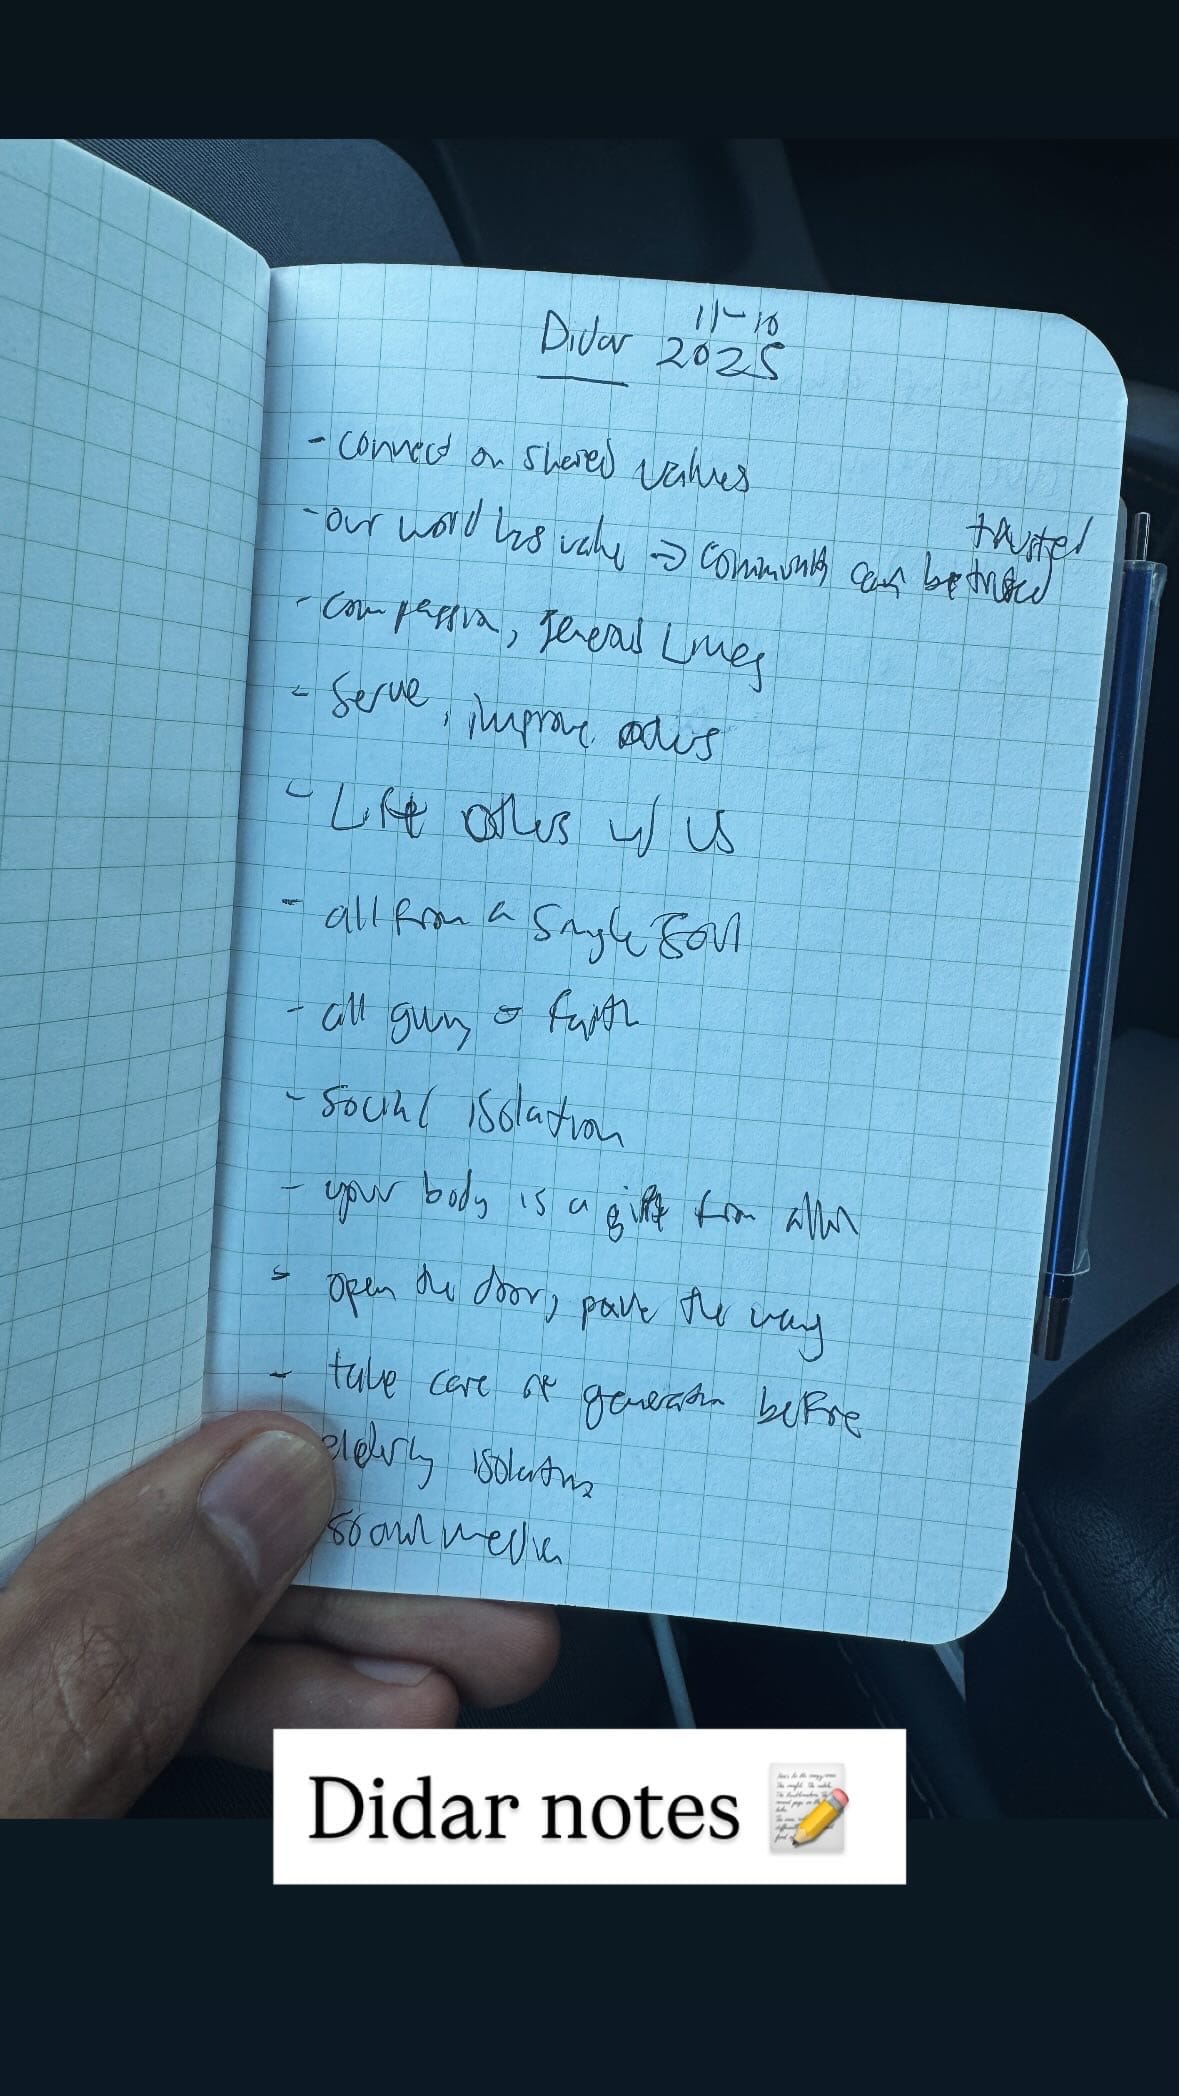 11-10
Didar 2025
- connect on shared values
trusted
- our word has value => community can be trusted
- compassion, generous
- serve, improve others
- Lift others w/ us
- all from a single soul
- all
 faith
- social isolation
- your body is a gift from allah
- open the door, pave the way
- take care of generation before
elderly isolation
social media
Didar notes 📝